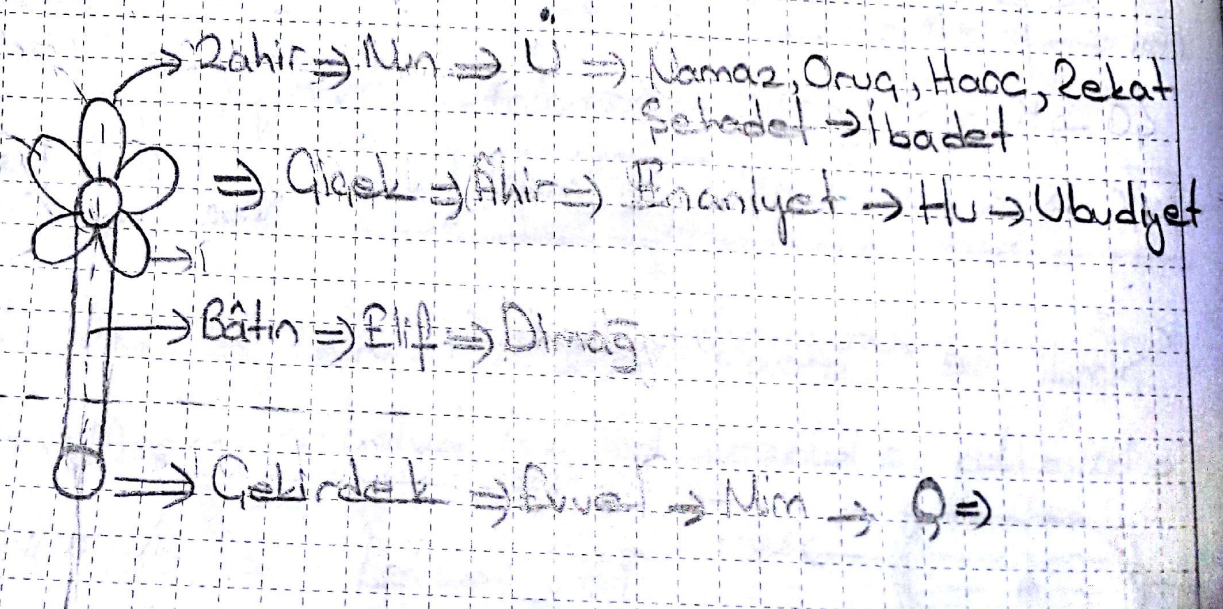 → Zahir ⇒ Nun ⇒ Ü ⇒ Namaz, Oruç, Hacc, Zekat
Şehadet → İbadet
⇒ Çiçek ⇒ Âhir ⇒ Enaniyet → Hu → Ubudiyet
→ i
→ Bâtın ⇒ Elif ⇒ Dimağ
⇒ Çekirdek ⇒ Evvel → Mim →